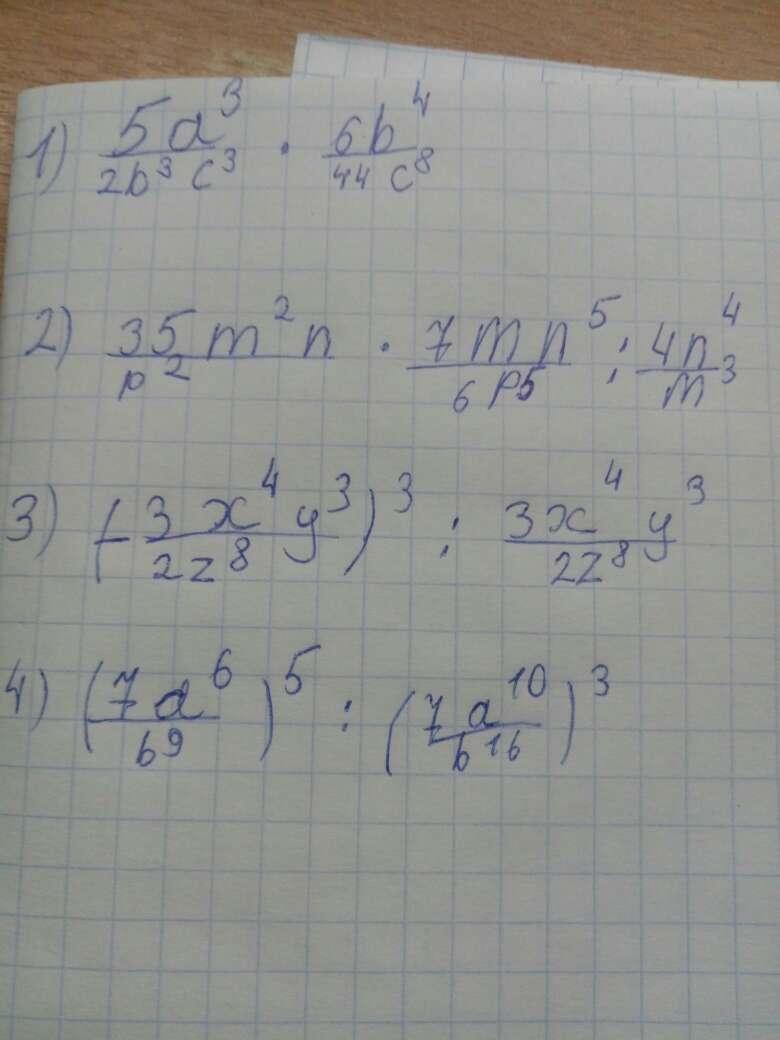 1) 5a³/2b³c³ · 6b⁴/44c⁸
2) 35m²n/p² · 7mn⁵/6p5 : 4n⁴/m³
3) (-3x⁴y³/2z⁸)³ : 3x⁴y³/2z⁸
4) (7a⁶/b⁹)⁵ : (7a¹⁰/b¹⁶)³